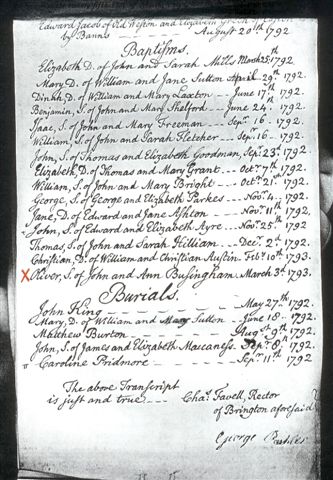 Edward Jacob of Old Weston and Elizabeth Green of
by Banns - - August 20th 1792
Baptisms.
Elizabeth D. of John and Sarah Mills March 25th 1792.
Mary D. of William and Jane Sutton April 29th 1792.
Dinah D. of William and Mary Laxton - June 17th 1792.
Benjamin, S. of John and Mary Shelford - June 24. 1792.
Isaac, S. of John and Mary Freeman - Sepr. 16. 1792.
William, S. of John and Sarah Fletcher - Sepr. 16 - 1792.
John, S. of Thomas and Elizabeth Goodman, Sepr. 23. 1792.
Elizabeth D. of Thomas and Mary Grant - Octr. 7th 1792.
William, S. of John and Mary Bright - Octr. 21st 1792.
George, S. of George and Elizabeth Parkes - Novr. 4. 1792.
Jane, D. of Edward and Jane Ashton - Novr. 11th 1792.
John, S. of Edward and Elizabeth Ayre - Novr. 25th 1792.
Thomas, S. of John and Sarah Hilliam - Decr. 2d. 1792.
Christian D. of William and Christian Austin Febr. 10th 1793.
X Oliver, S. of John and Ann Busingham, March 3d. 1793.
Burials.
John King - - - May 27th 1792.
Mary, D. of William and Mary Sutton - June 18 - 1792.
Matthew Burton - - Augst 9th 1792.
John, S. of James and Elizabeth Maccaness. Sepr. 8th 1792.
Caroline Pridmore - - - Sepr. 11th 1792
The above Transcript
is just and true - - - Chas. Favell, Rector
of Brington aforesaid
George